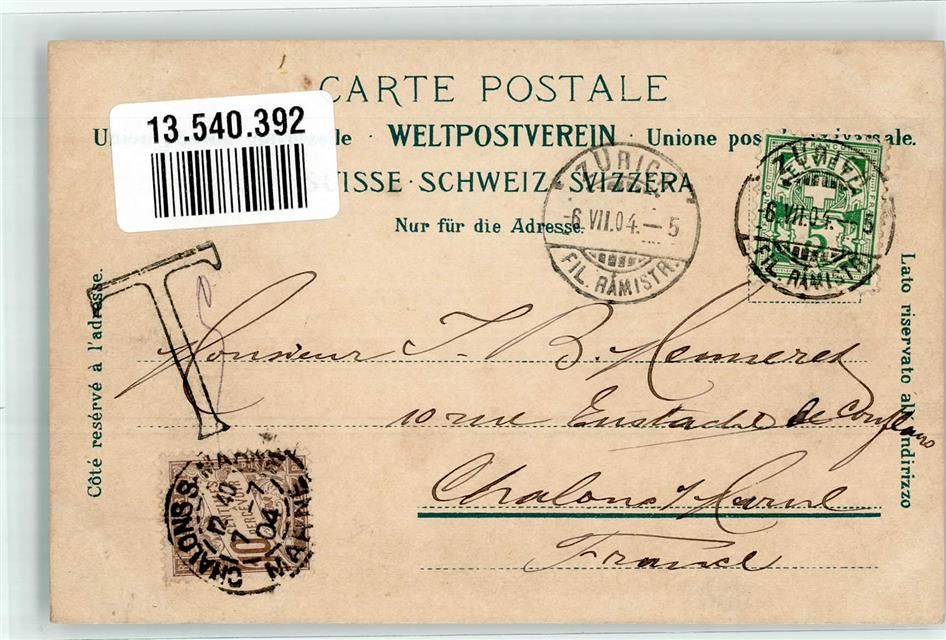 CARTE POSTALE
13.540.392
le · WELTPOSTVEREIN · Unione postale universale.
SUISSE · SCHWEIZ · SVIZZERA
Nur für die Adresse.
ZÜRICH
-6.VII.04.-5
FIL. RÄMISTR.
ZÜRICH
HELVETIA
-6.VII.04.-5
5
FIL. RÄMISTR.
Côté resérvé à l'adresse.
Lato riservato all'indirizzo
T
Monsieur J. B.
10 rue Eustache de Conflans
Chalons s/ Marne
France
CHALONS-S-MARNE
12 40
7 -7
04
MARNE
10